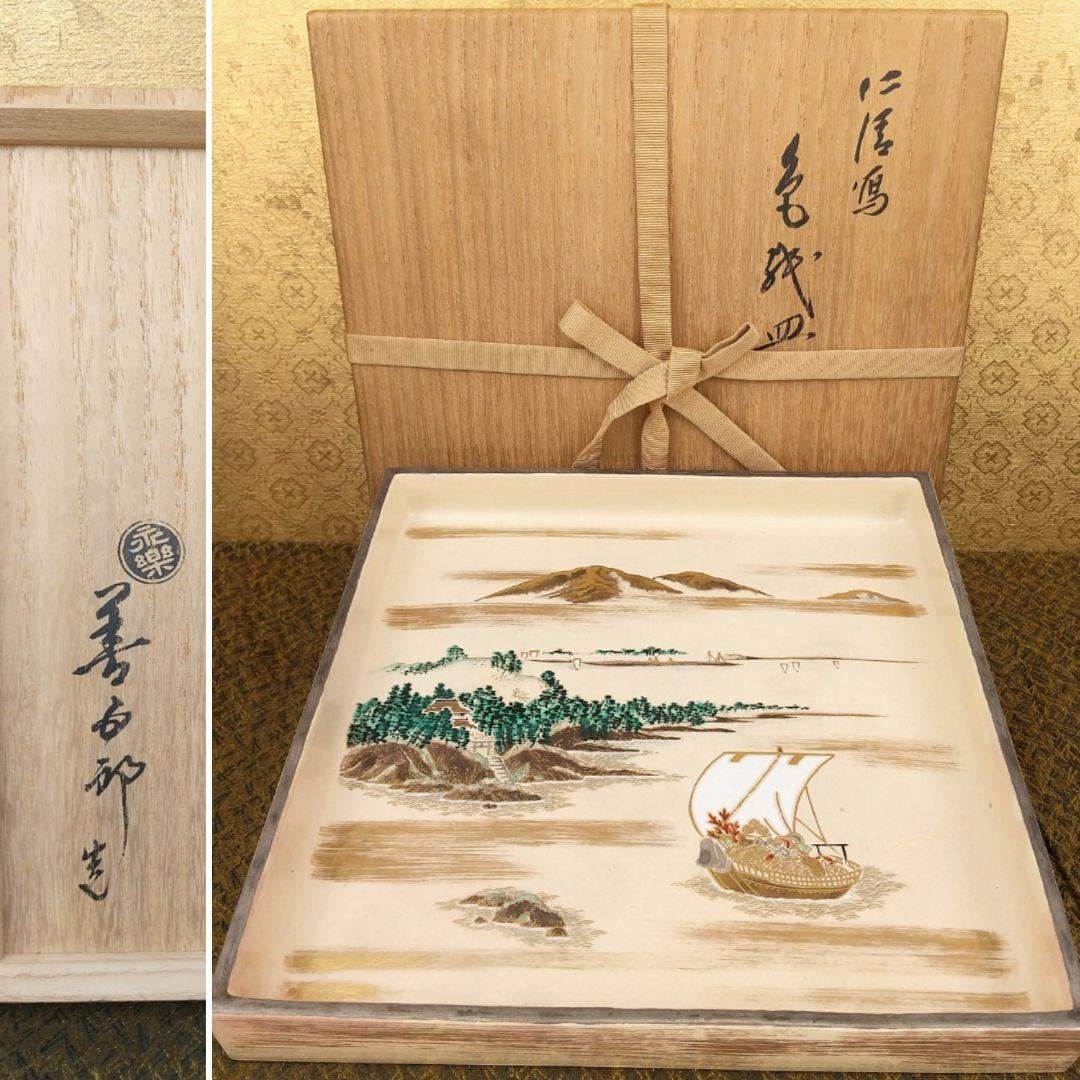 仁清写
皿
永樂
善五郎
造